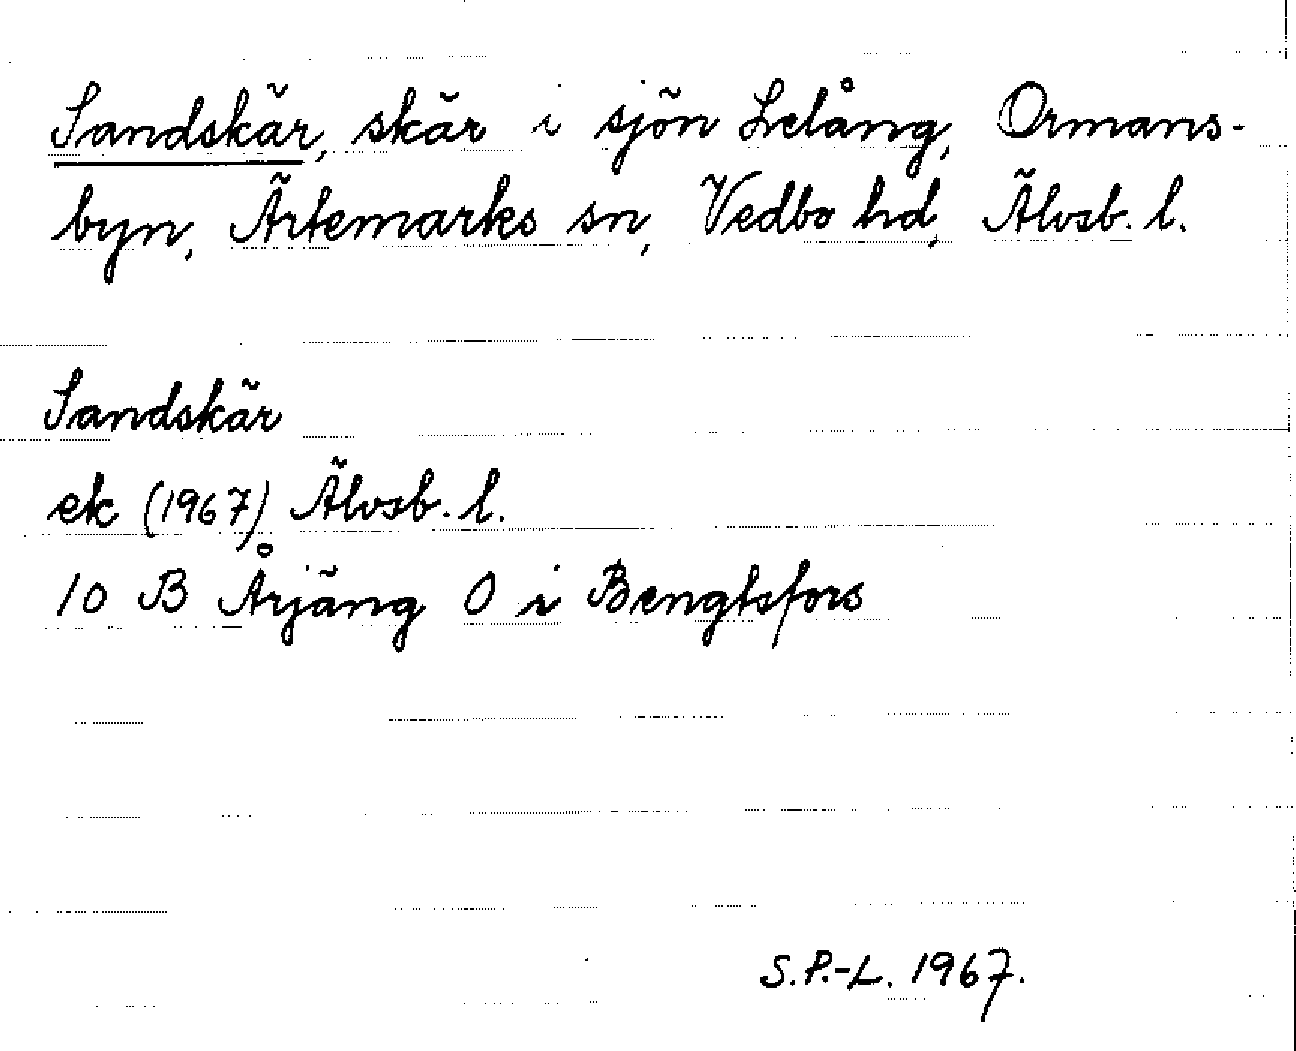 Sandskär, skär i sjön Lelång, Ormans-
byn, Ärtemarks sn, Vedbo hd, Älvsb. l.
Sandskär
ek (1967) Älvsb. l.
10 B Årjäng 0 i Bengtsfors
S.P.-L. 1967.